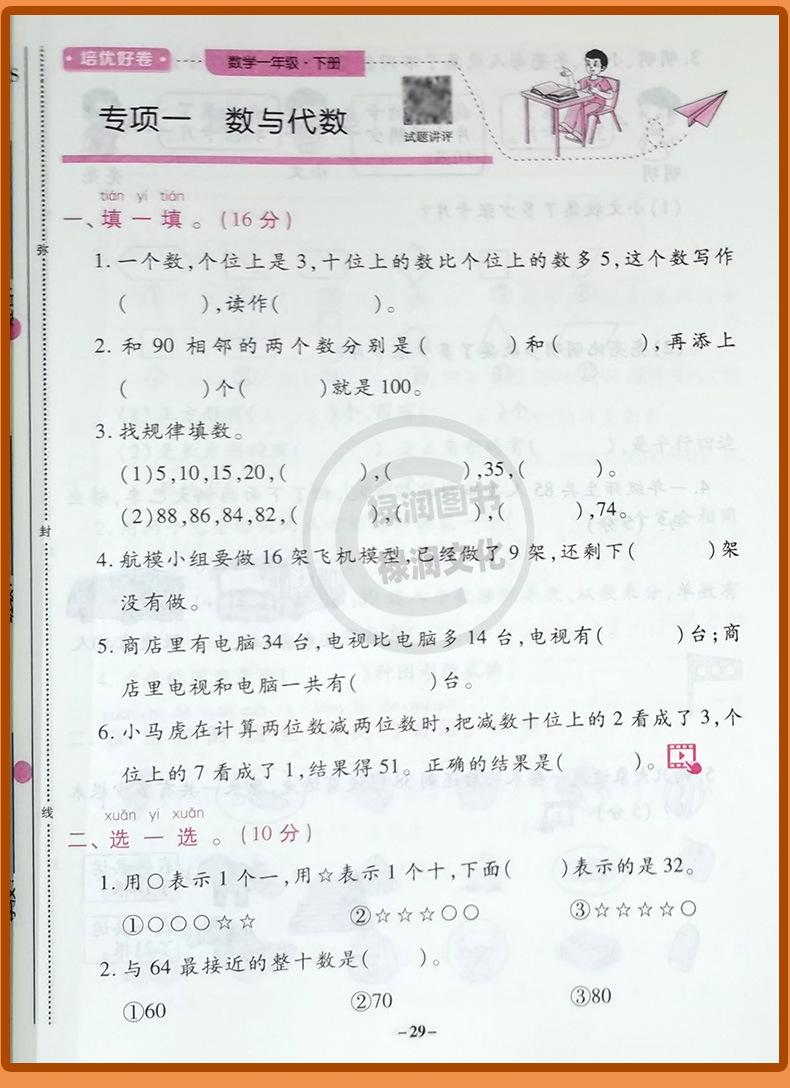 培优好卷
数学一年级·下册
专项一 数与代数
试题讲评
tián yi tián
一、填一填。(16分)
1.一个数,个位上是3,十位上的数比个位上的数多5,这个数写作
( ),读作( )。
2.和90相邻的两个数分别是( )和( ),再添上
( )个( )就是100。
3.找规律填数。
(1)5,10,15,20,( ),( ),35,( )。
(2)88,86,84,82,( ),( ),( ),74。
4.航模小组要做16架飞机模型,已经做了9架,还剩下( )架
没有做。
5.商店里有电脑34台,电视比电脑多14台,电视有( )台;商
店里电视和电脑一共有( )台。
6.小马虎在计算两位数减两位数时,把减数十位上的2看成了3,个
位上的7看成了1,结果得51。正确的结果是( )。
xuǎn yi xuǎn
二、选一选。(10分)
1.用○表示1个一,用☆表示1个十,下面( )表示的是32。
①○○○☆☆ ②☆☆☆○○ ③☆☆☆☆○
2.与64最接近的整十数是( )。
①60 ②70 ③80
-29-
弥
封
线
禄润图书
禄润文化